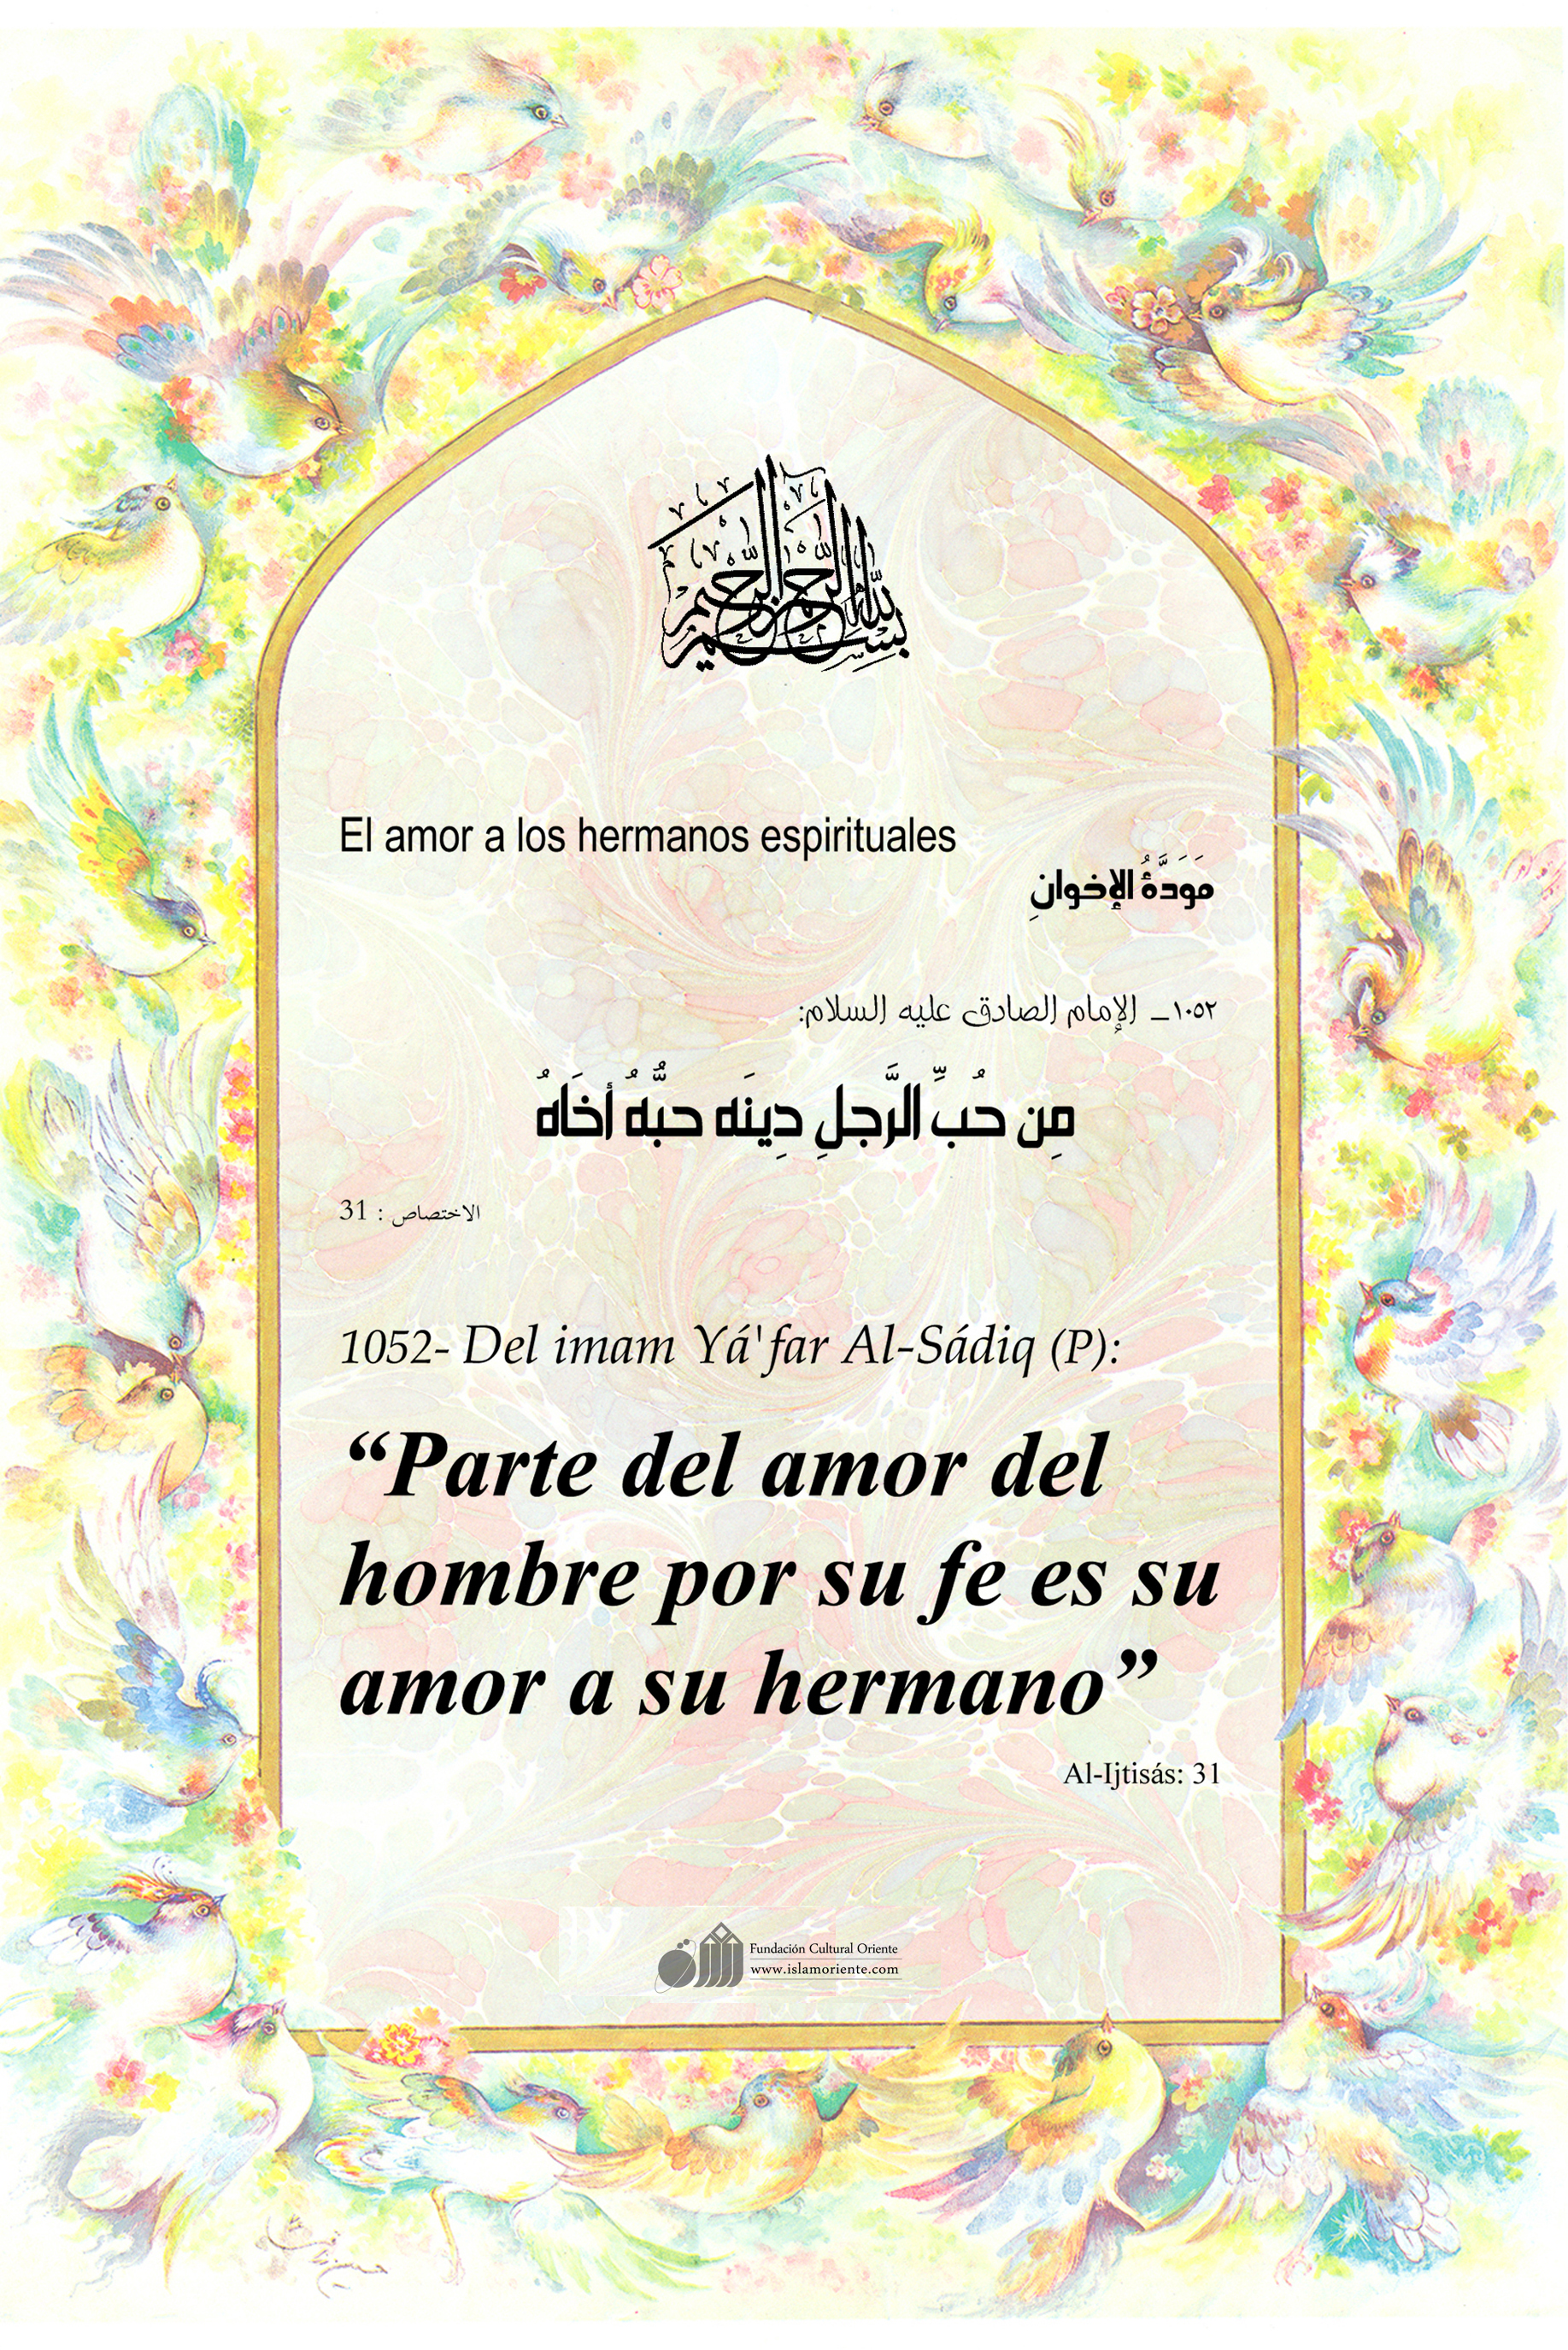 بسم الله الرحمن الرحيم
El amor a los hermanos espirituales
مَوَدَّةُ الإخوانِ
١٠٥٢ــ الإمام الصادق عليه السلام:
مِن حُبِّ الرَّجلِ دِينَه حبُّهُ أخَاهُ
الاختصاص : 31
1052- Del imam Yá'far Al-Sádiq (P):
“Parte del amor del
hombre por su fe es su
amor a su hermano”
Al-Ijtisás: 31
Fundación Cultural Oriente
www.islamoriente.com